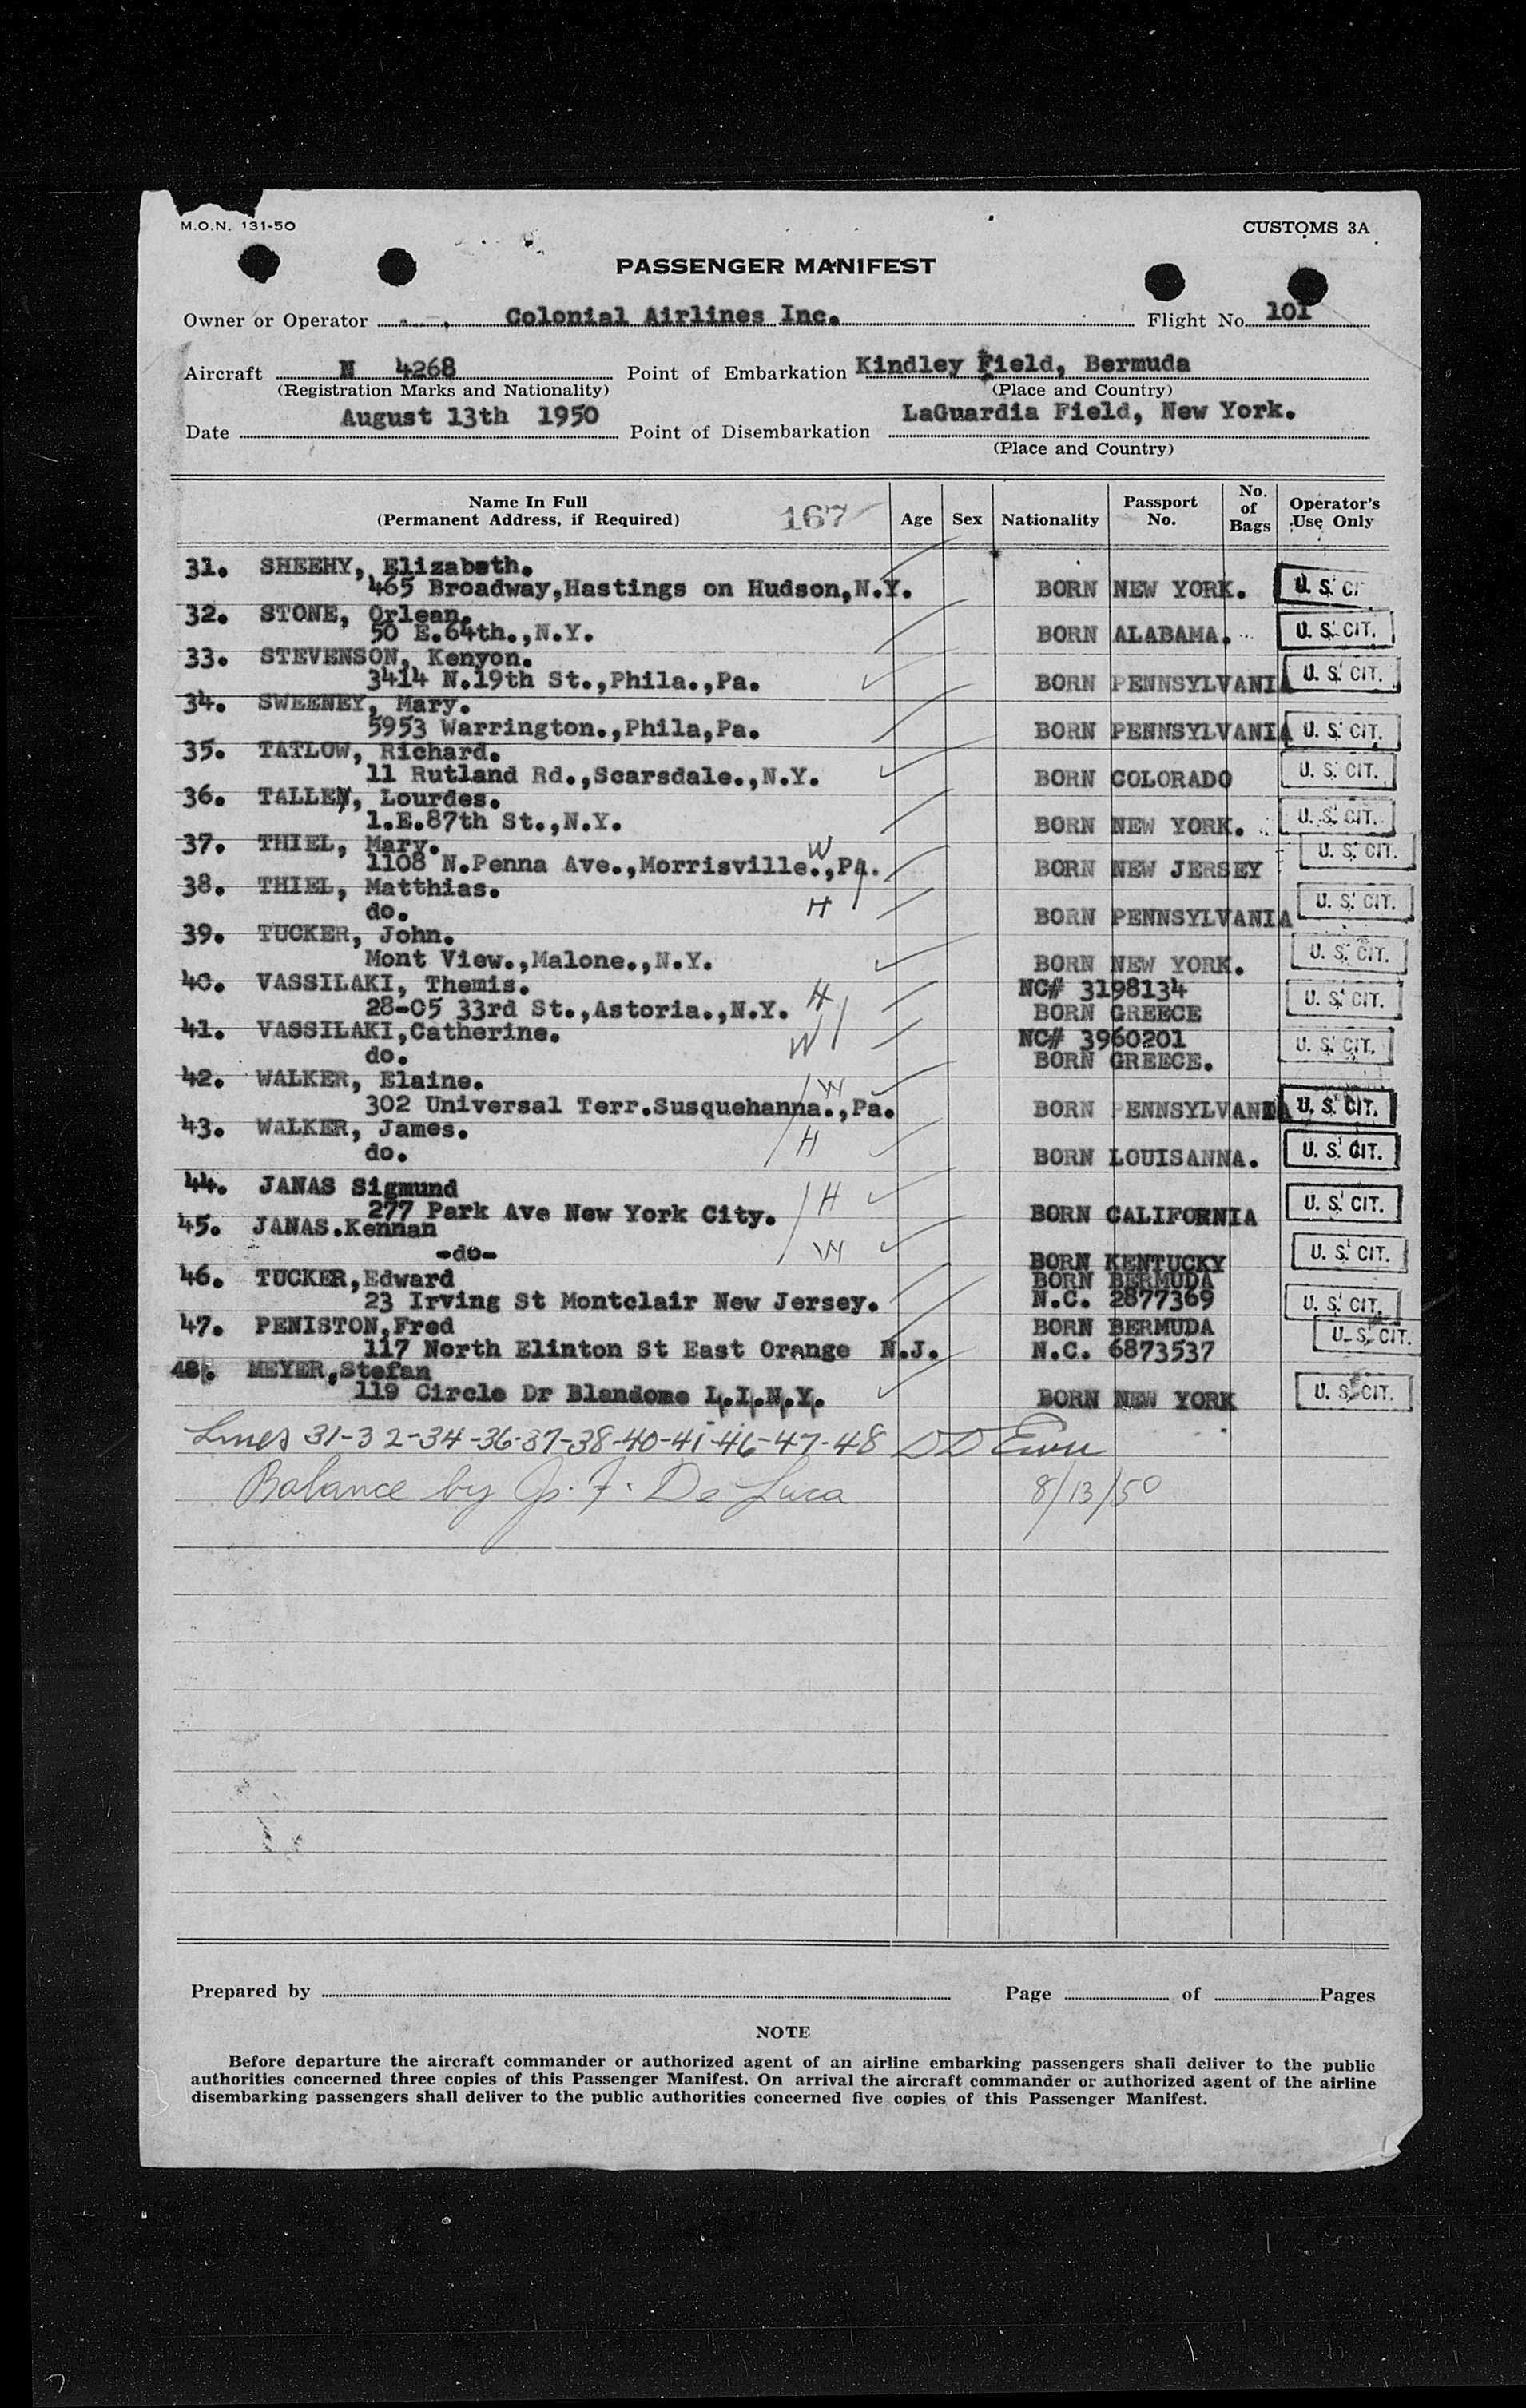 M.O.N. 131-50
CUSTOMS 3A
PASSENGER MANIFEST
Owner or Operator Colonial Airlines Inc. Flight No. 101
Aircraft N 4268 Point of Embarkation Kindley Field, Bermuda
(Registration Marks and Nationality) (Place and Country)
August 13th 1950 LaGuardia Field, New York.
Date Point of Disembarkation
(Place and Country)
Name In Full
(Permanent Address, if Required)
167
Age Sex Nationality Passport No. No. of Bags Operator's Use Only
31. SHEEHY, Elizabeth.
465 Broadway,Hastings on Hudson,N.Y. BORN NEW YORK. U. S. CI
32. STONE, Orlean.
50 E.64th.,N.Y. BORN ALABAMA. U. S. CIT.
33. STEVENSON, Kenyon.
3414 N.19th St.,Phila.,Pa. BORN PENNSYLVANIA U. S. CIT.
34. SWEENEY, Mary.
5953 Warrington.,Phila,Pa. BORN PENNSYLVANIA U. S. CIT.
35. TATLOW, Richard.
11 Rutland Rd.,Scarsdale.,N.Y. BORN COLORADO U. S. CIT.
36. TALLEY, Lourdes.
1.E.87th St.,N.Y. BORN NEW YORK. U. S. CIT.
37. THIEL, Mary. W
1108 N.Penna Ave.,Morrisville.,Pa. BORN NEW JERSEY U. S. CIT.
38. THIEL, Matthias.
do. H BORN PENNSYLVANIA U. S. CIT.
39. TUCKER, John.
Mont View.,Malone.,N.Y. BORN NEW YORK. U. S. CIT.
40. VASSILAKI, Themis. H NC# 3198134
28-05 33rd St.,Astoria.,N.Y. BORN GREECE U. S. CIT.
41. VASSILAKI,Catherine. W NC# 3960201
do. BORN GREECE. U. S. CIT.
42. WALKER, Elaine. W
302 Universal Terr.Susquehanna.,Pa. BORN PENNSYLVANIA U. S. CIT.
43. WALKER, James. H
do. BORN LOUISANNA. U. S. CIT.
44. JANAS Sigmund H
277 Park Ave New York City. BORN CALIFORNIA U. S. CIT.
45. JANAS.Kennan
-do- W BORN KENTUCKY U. S. CIT.
46. TUCKER,Edward BORN BERMUDA
23 Irving St Montclair New Jersey. N.C. 2877369 U. S. CIT.
47. PENISTON,Fred BORN BERMUDA U. S. CIT.
117 North Elinton St East Orange N.J. N.C. 6873537
48. MEYER,Stefan
119 Circle Dr Blandome L.I.N.Y. BORN NEW YORK U. S. CIT.
Lines 31-32-34-36-37-38-40-41-46-47-48 D D
Balance by J. F. De Luca 8/13/50
Prepared by Page of Pages
NOTE
Before departure the aircraft commander or authorized agent of an airline embarking passengers shall deliver to the public
authorities concerned three copies of this Passenger Manifest. On arrival the aircraft commander or authorized agent of the airline
disembarking passengers shall deliver to the public authorities concerned five copies of this Passenger Manifest.